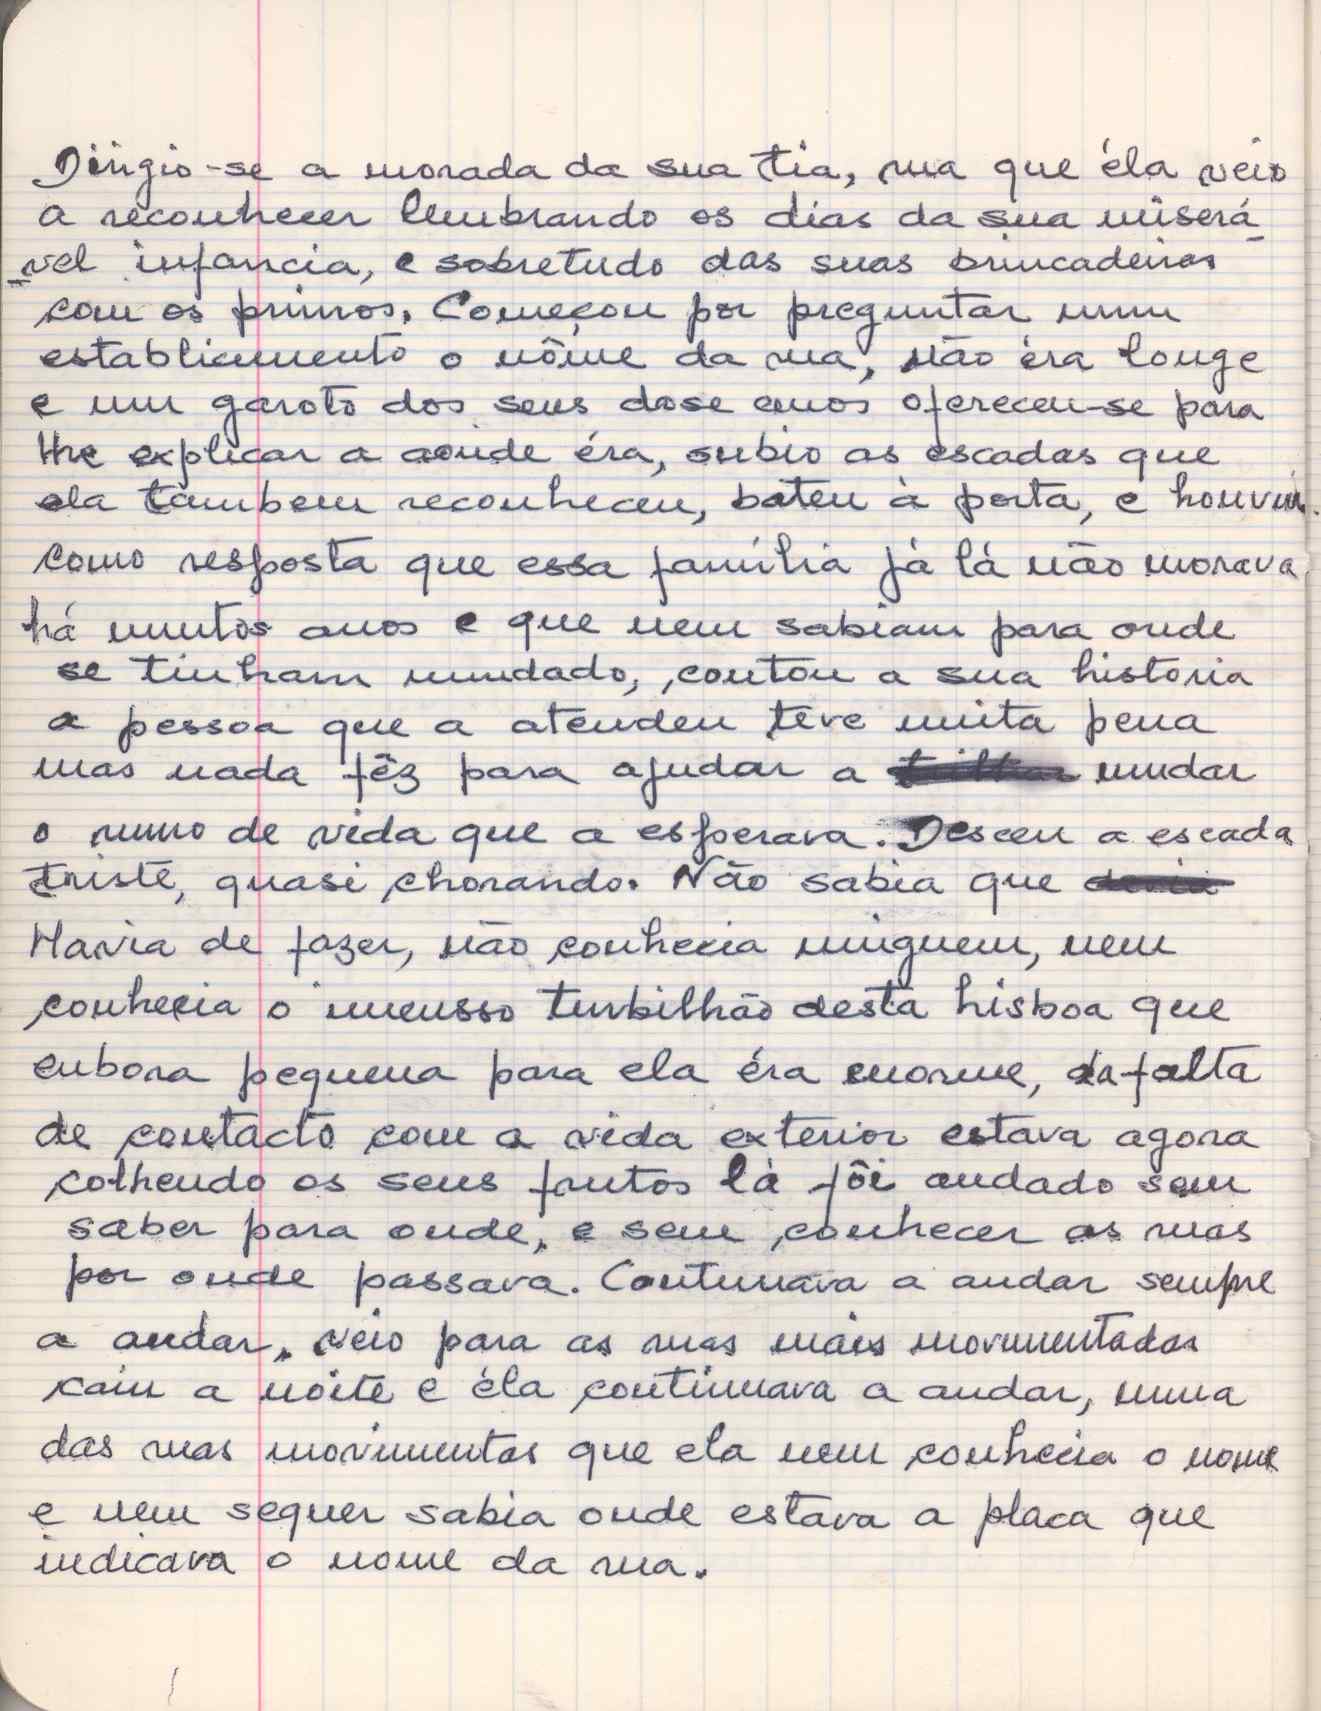 Dirigio-se a morada da sua tia, rua que éla veio
a reconhecer lembrando os dias da sua miserá
-vel infancia, e sobretudo das suas brincadeiras
com os primos. Começou por preguntar num
establicimento o nôme da rua, não éra longe
e um garoto dos seus dose anos ofereceu-se para
lhe explicar a aonde éra, subio as escadas que
ela tambem reconheceu, bateu à porta, e houviu
como resposta que essa família já lá não morava
há muntos anos e que nem sabiam para onde
se tinham mundado, contou a sua historia
a pessoa que a atendeu teve muita pena
mas nada fêz para ajudar a mudar
o rumo de vida que a esperava. Desceu a escada
triste, quasi chorando. Não sabia que
Havia de fazer, não conhecia ninguem, nem
conhecia o imensso turbilhão desta Lisboa que
enbora pequena para ela éra enorme, da falta
de contacto com a vida exterior estava agora
colhendo os seus frutos lá fôi andado sem
saber para onde, e sem conhecer as ruas
por onde passava. Contunava a andar sempre
a andar, veio para as ruas mais movimentadas
caiu a noite e éla continuava a andar, numa
das ruas movimentas que ela nem conhecia o nome
e nem sequer sabia onde estava a placa que
indicava o nome da rua.